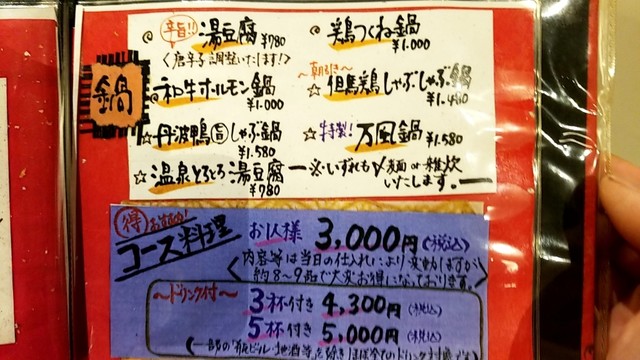 鍋
辛旨!! 湯豆腐 ¥780
〈唐辛子調整いたします!〉
和牛ホルモン鍋 ¥1.000
☆丹波鴨旨しゃぶ鍋 ¥1.580
☆温泉とろとろ湯豆腐 ¥780
鶏つくね鍋 ¥1.000
～朝引き～
☆但馬鶏しゃぶしゃぶ鍋
☆特製!万風鍋 ¥1.580
※いずれも〆麺or雑炊
いたします。
得おすすめ!
コース料理
お1人様 3,000円(税込)
内容等は当日の仕入れにより変動しますが
約8～9品で大変お得になっております。
～ドリンク付～
3杯付き 4,300円(税込)
5杯付き 5,000円(税込)